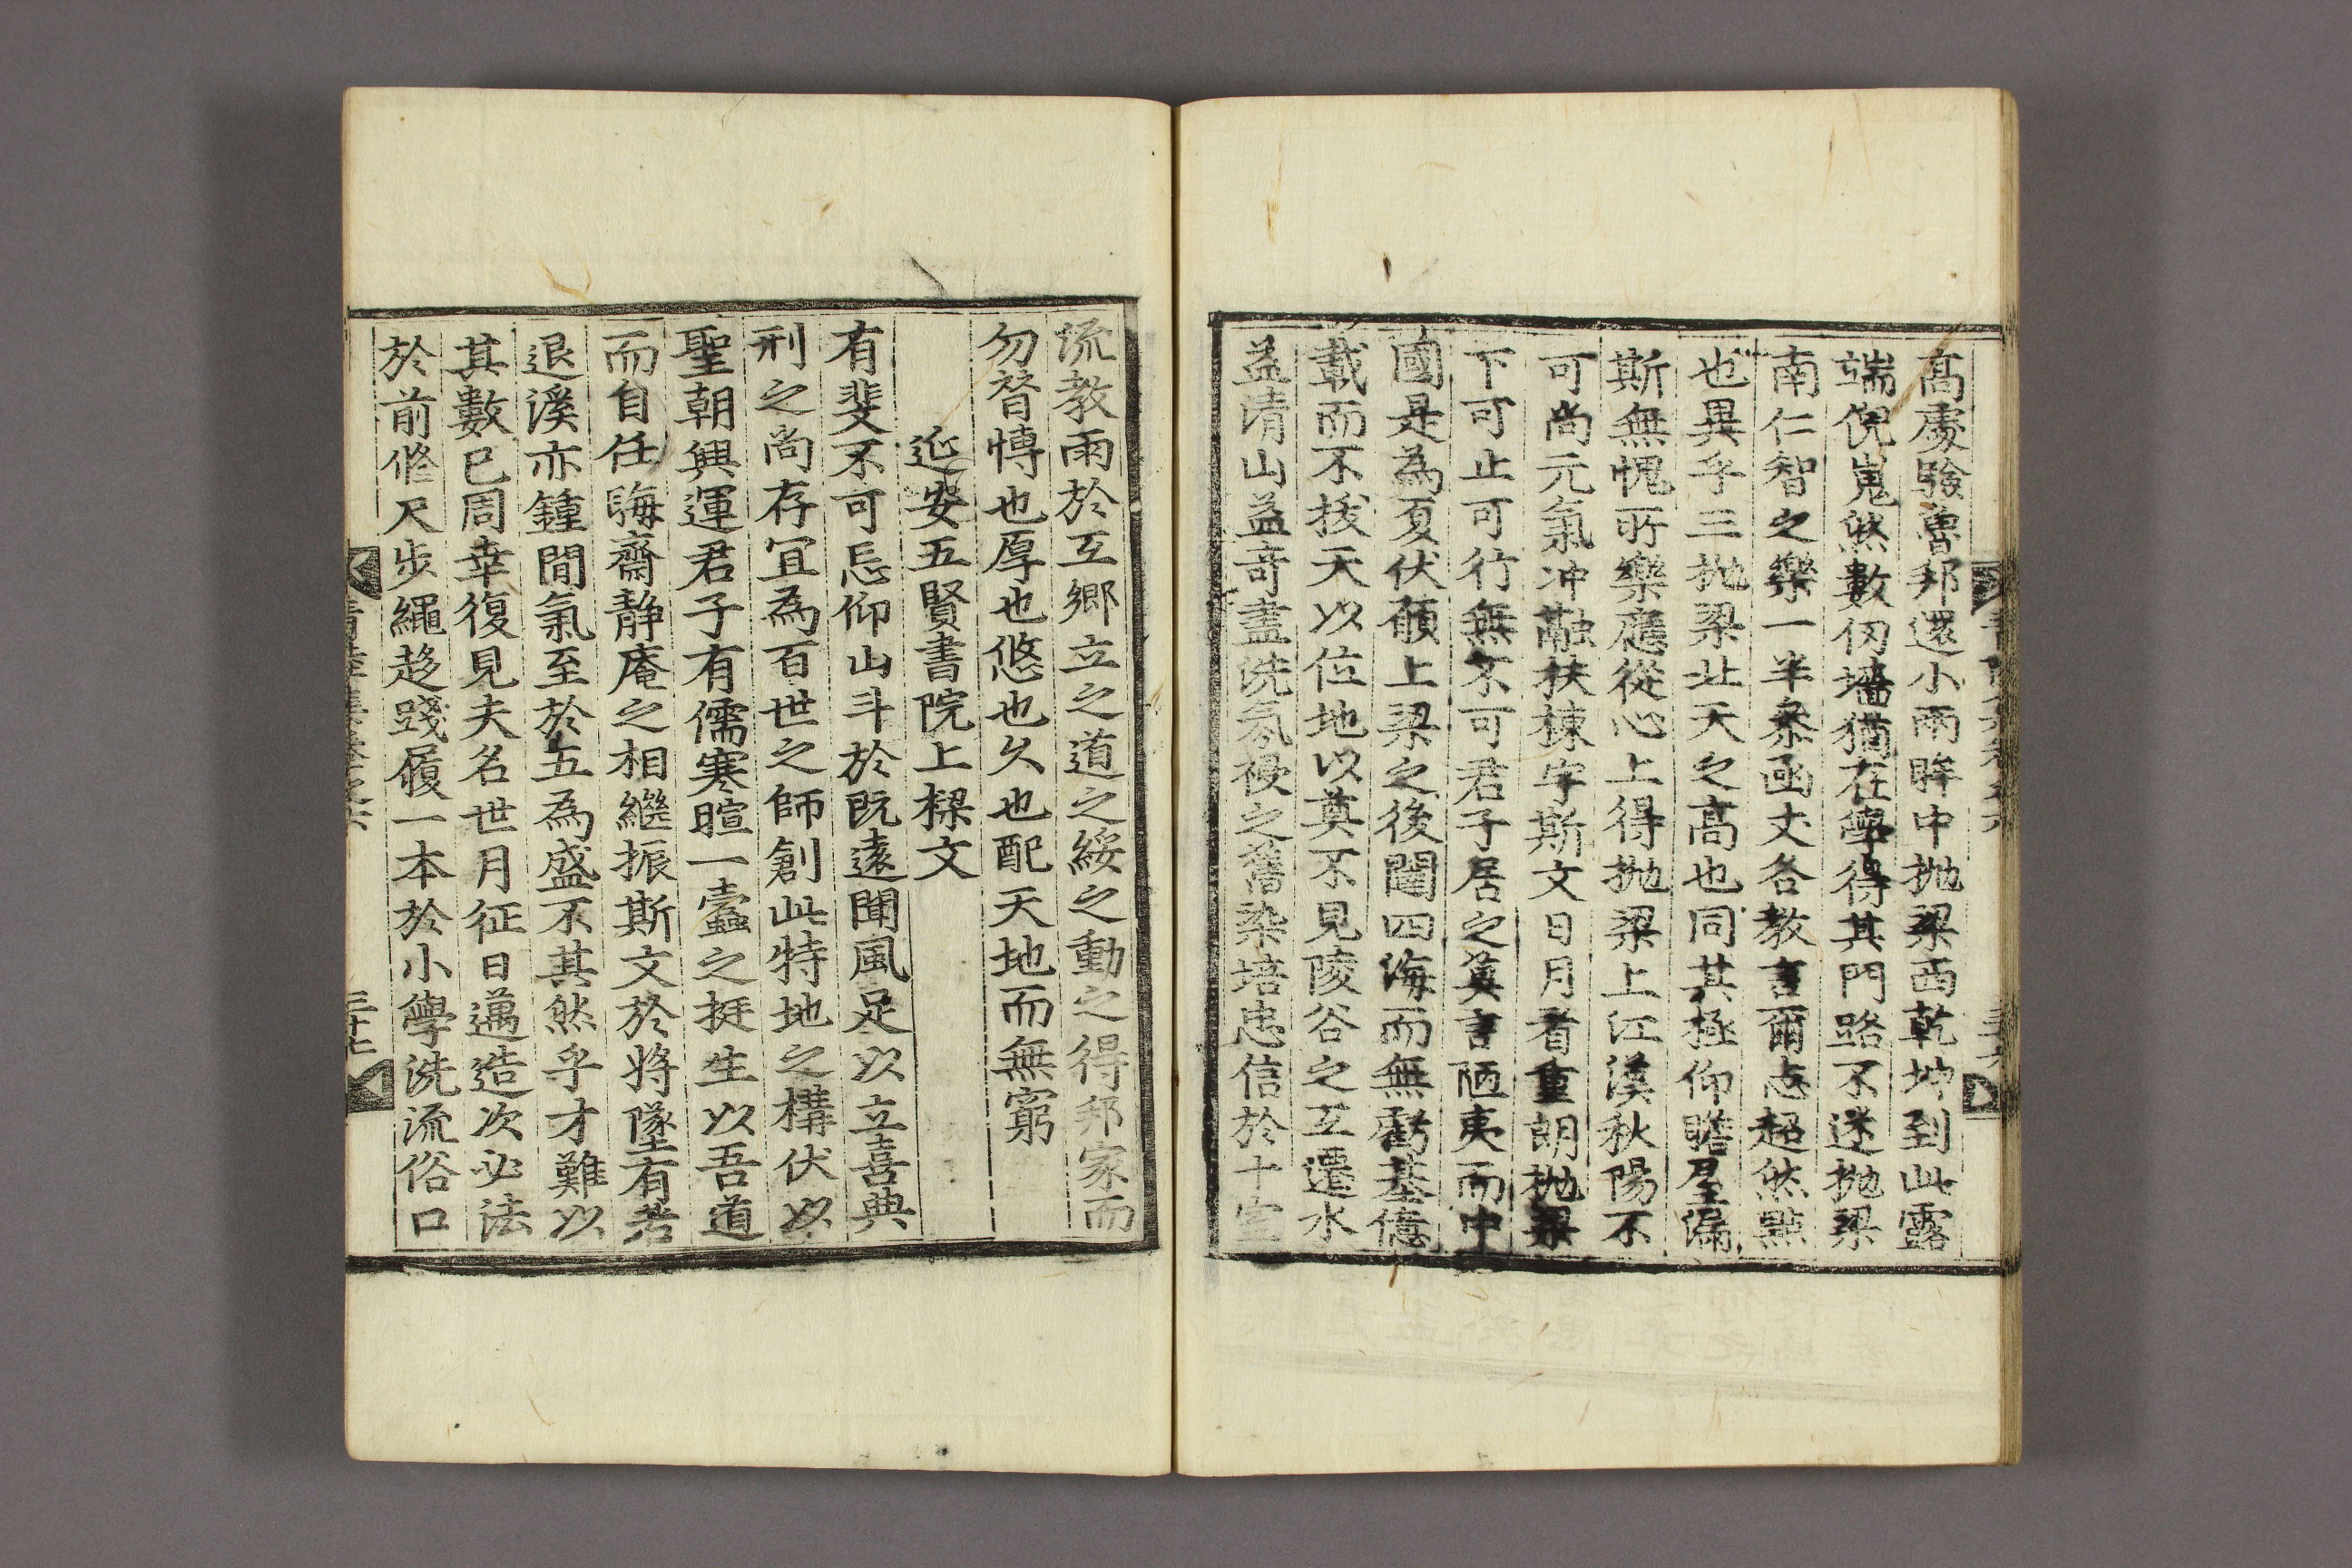 高處驗魯邦還小兩眸中抛梁西乾坤到此露
端倪嵬然數仞墻猶在學得其門路不迷抛梁
南仁智之樂一半參函丈各教言爾志超然點
也異乎三抛梁北天之高也同其極仰瞻星漏
斯無愧所樂應從心上得抛梁上江漢秋陽不
可尚元氣冲融扶棟宇斯文日月看重朗抛梁
下可止可行無不可君子居之奠言陋夷而中
國是為夏伏願上梁之後闔四海而無虧基億
載而不拔天以位地以奠不見陵谷之互遷水
益清山益奇盡洗氛祲之舊染培忠信於十室
流教雨於互鄉立之道之綏之動之得邦家而
勿替慱也厚也悠也久也配天地而無窮
近安五賢書院上樑文
有斐不可忘仰山斗於旣遠聞風足以立喜典
刑之尚存冝為百世之師創此特地之構伏以
聖朝興運君子有儒寒暄一蠹之挺生以吾道
而自任晦齋靜庵之相繼振斯文於將墜有若
退溪亦鍾間氣至於五為盛不其然乎才難以
其數已周幸復見夫名世月征日邁造次必法
於前修尺步繩趍踐履一本於小學洗流俗口
三十七